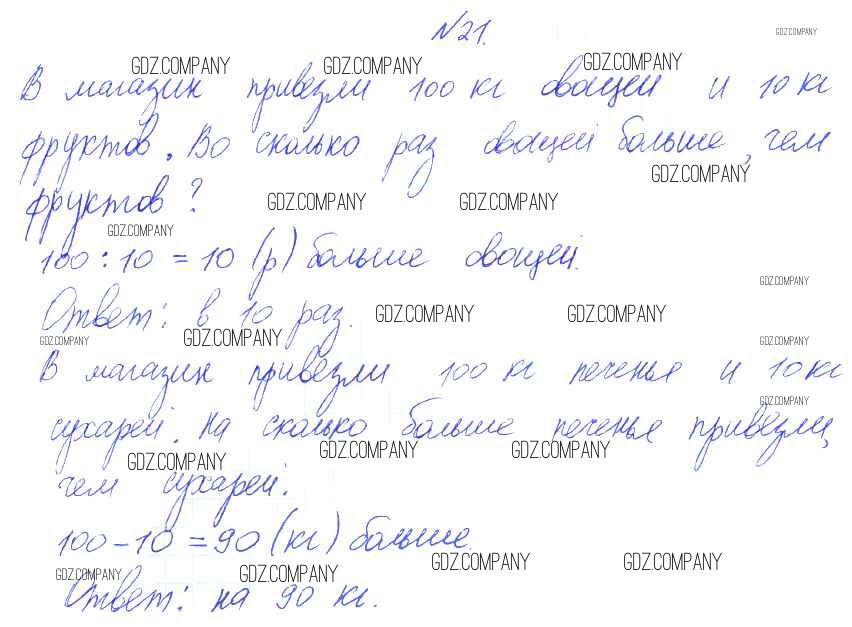 №21.
GDZ.COMPANY
GDZ.COMPANY GDZ.COMPANY GDZ.COMPANY
В магазин привезли 100 кг овощей и 10 кг
фруктов. Во сколько раз овощей больше, чем
GDZ.COMPANY
фруктов?
GDZ.COMPANY GDZ.COMPANY
GDZ.COMPANY
100 : 10 = 10 (р) больше овощей.
GDZ.COMPANY
Ответ: в 10 раз.
GDZ.COMPANY GDZ.COMPANY
GDZ.COMPANY GDZ.COMPANY GDZ.COMPANY
В магазин привезли 100 кг печенья и 10 кг
GDZ.COMPANY
сухарей. На сколько больше печенья привезли,
GDZ.COMPANY GDZ.COMPANY GDZ.COMPANY
чем сухарей.
100 - 10 = 90 (кг) больше.
GDZ.COMPANY GDZ.COMPANY
GDZ.COMPANY GDZ.COMPANY
Ответ: на 90 кг.